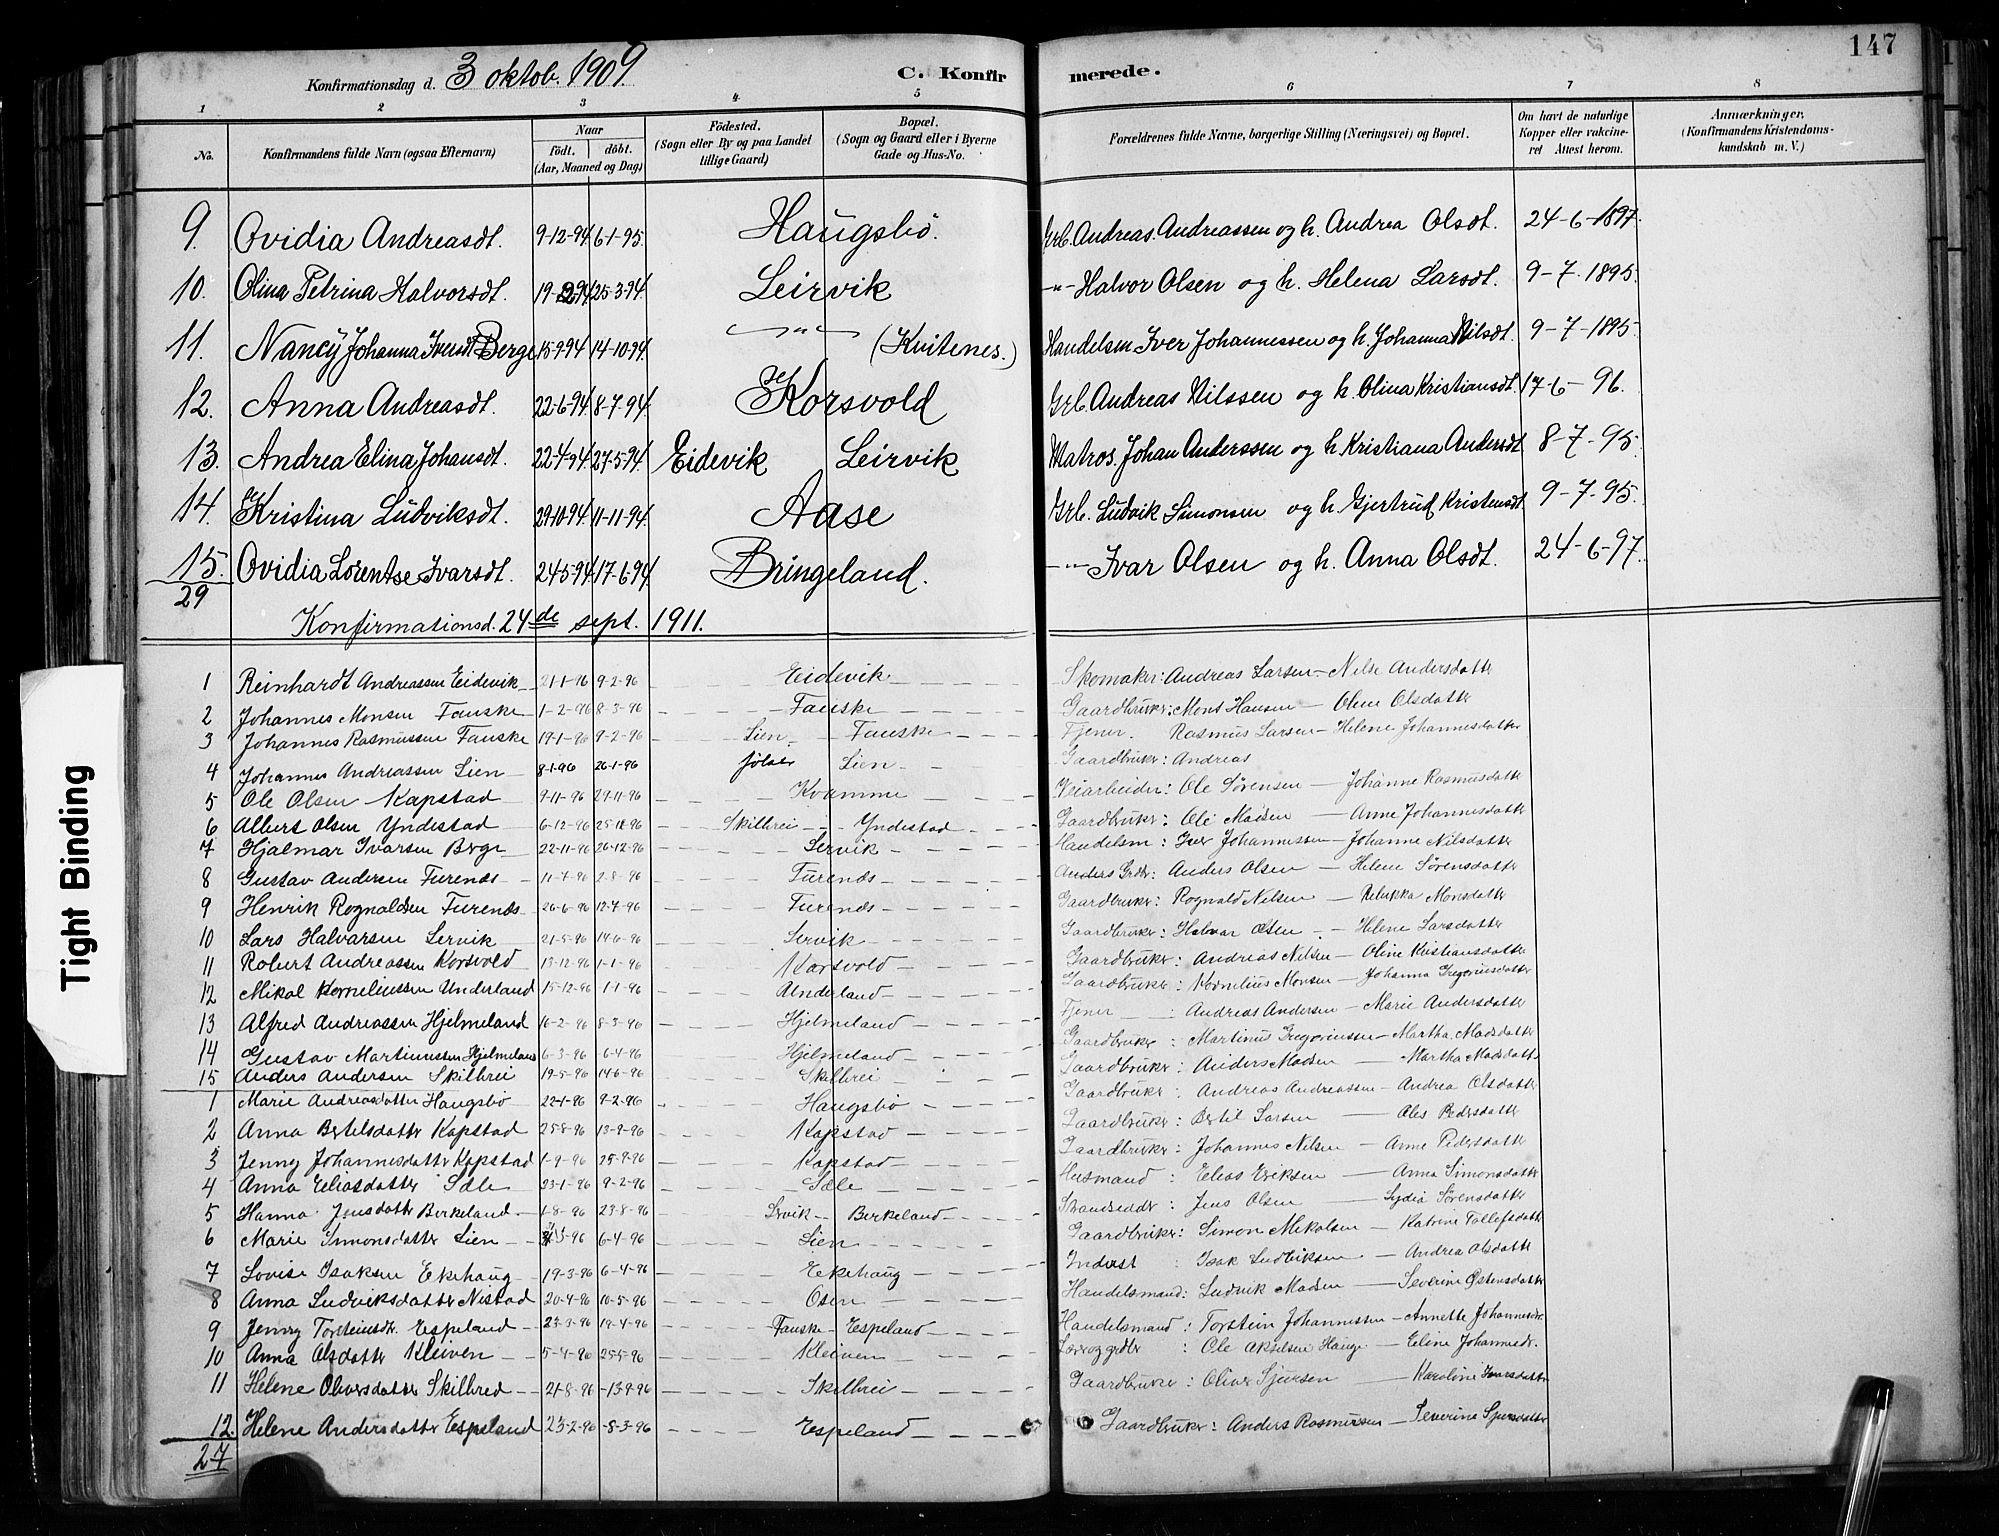 147
Konfirmationsdag d. 3 oktob. 1909. C. Konfir merede.
1 2 3 4. 5 6 7 8
No. Konfirmandens fulde Navn (ogsaa Efternavn) Naar födt. döbt. (Aar, Maaned og Dag) Födested. (Sogn eller By og paa Landet tillige Gaard) Bopæl. (Sogn og Gaard eller i Byerne Gade og Hus-No. Forældrenes fulde Navne, borgerlige Stilling (Næringsvei) og Bopæl. Om havt de naturlige Kopper eller vakcineret Attest herom. Anmærkninger, (Konfirmandens Kristendomskundskab m. V.)
9. Ovidia Andreasdt. 9-12-94 6-1-95. Haugsbö. Grb. Andreas Andreassen og h. Andrea Olsdt. 24-6-1897.
10. Olina Petrina Halvorsdt. 25-3-94. Leirvik -"- Halvor Olsen og h. Helena Larsdt. 9-7-1895.
11. Nancy Johanna Iversdt Berge 15-9-94 14-10-94. -"- (Kvitenes.) Handelsm Iver Johannessen og h. Johanna Nilsdt. 9-7-1895.
12. Anna Andreasdt. 22-6-94 8-7-94 Korsvold Grb. Andreas Nilssen og h. Olina Kristiansdt. 17-6-96.
13. Andrea Elina Johansdt. 22-4-94 27-5-94. Eidevik Leirvik Matros. Johan Anderssen og h. Kristiana Andersdt 8-7-95.
14. Kristina Ludviksdt. 29-10-94. 11-11-94. Aase Grb. Ludvik Simonsen og h. Gjertrud Kristensdt 9-7-95.
15. Ovidia Lorentse Ivarsdt. 24-5-94 17-6-94 Bringeland. -"- Ivar Olsen og h. Anna Olsdt. 24-6-97.
29
Konfirmationsd. 24de sept. 1911.
1 Reinhardt Andreassen Eidevik 21-1-96 9-2-96 Eidevik Skomaker: Andreas Larsen - Nelse Andersdatter
2 Johannes Monsen Fauske 1-2-96 8-3-96 Fauske Gaardbruker: Mons Hansen - Oline Olsdatter
3 Johannes Rasmussen Fauske 19-1-96 9-2-96 Lien Fauske Tjener. Rasmus Larsen - Helene Johannesdatter
4 Johannes Andreassen Lien 8-1-96 26-1-96 Jölster Lien Gaardbruker: Andreas
5 Ole Olsen Kapstad 9-11-96 29-11-96 Kvamme Veiarbeider: Ole Sørensen - Johanne Rasmusdatter
6 Albert Olsen Yndestad 6-12-96 Skilbrei Yndestad Gaardbruker: Ole Madsen - Anne Johannesdatter
7 Hjalmar Ivarsen Berge 22-11-96 26-12-96 Lervik Handelsm: Iver Johannessen - Johanne Nilsdatter
8 Gustav Andersen Turends 11-7-96 2-8-96 Turends Anders Grdbr: Anders Olsen - Helene Sørensdatter
9 Henrik Rognaldsen Turends 26-6-96 12-4-96 Turends Gaardbruker: Rognald Nelsen - Rebekka Monsdatter
10 Lars Halvarsen Lervik 21-5-96 14-6-96 Lervik Gaardbruker: Halvar Olsen - Helene Larsdatter
11 Robert Andreassen Korsvold 13-12-96 1-1-96 Korsvold Gaardbruker: Andreas Nelsen - Oline Kristiansdatter
12 Mikal Korneliussen Underland 15-12-96 1-1-96 Underland Gaardbruker: Kornelius Monsen - Johanna Gregoriusdatter
13 Alfred Andreassen Hjelmeland 16-2-96 8-3-96 Hjelmeland Tjener: Andreas Andersen - Marie Andersdatter
14 Gustav Martinussen Hjelmeland 6-3-96 -6-4-96 Hjelmeland Gaardbruker: Martinus Gregoriussen - Martha Madsdatter
15 Anders Andersen Skilbrei 19-5-96 14-6-96 Skilbrei Gaardbruker: Anders Madsen - Martha Madsdatter
1 Marie Andreasdatter Haugsbö 22-1-96 9-2-96 Haugsbö Gaardbruker: Andreas Andreassen - Andrea Olsdatter
2 Anna Bertelsdatter Kapstad 25-8-96 13-9-96 Kapstad Gaardbruker: Bertil Larsen - Pedersdatter
3 Jenny Johannesdatter Kapstad 1-9-96 25-9-96 Kapstad Gaardbruker: Johannes Nelsen - Anne Pedersdatter
4 Anna Eliasdatter Sæle 23-1-96 9-2-96 Sæle Husmand: Elias Eriksen - Anna Simonsdatter
5 Hanna Jensdatter Berkeland 1-8-96 23-8-96 Lervik Berkeland Strandsidder: Jens Olsen - Lydia Sørensdatter
6 Marie Simonsdatter Lien 6-4-96 Lien Gaardbruker: Simon Mikalsen - Katrine Tollefsdatter
7 Lovise Isaksen Ekehaug 19-3-96 6-4-96 Ekehaug Inderst: Isak Ludviksen - Andrea Olsdatter
8 Anna Ludviksdatter Nestad 20-4-96 10-5-96 Osen Handelsmand: Ludvik Madsen - Severine Østensdatter
9 Jenny Torsteinsdr. Espeland 23-3-96 19-4-96 Fauske Espeland Handelsmand: Torstein Johannessen - Annette Johannesdr.
10 Anna Olsdatter Kleiven 5-4-96 25-5-96 Kleiven Lærer og grdbr: Ole Akselsen Hauge - Eline Johannesdr.
11 Helene Oliversdatter Skilbred 21-8-96 -13-9-96 Skilbrei Gaardbruker: Oliver Sjursen - Karoline Ivarsdatter
12. Helene Andersdatter Espeland 23-2-96 -8-3-96 Espeland Gaardbruker: Anders Rasmussen - Severine Sjursdatter
27
Tight Binding